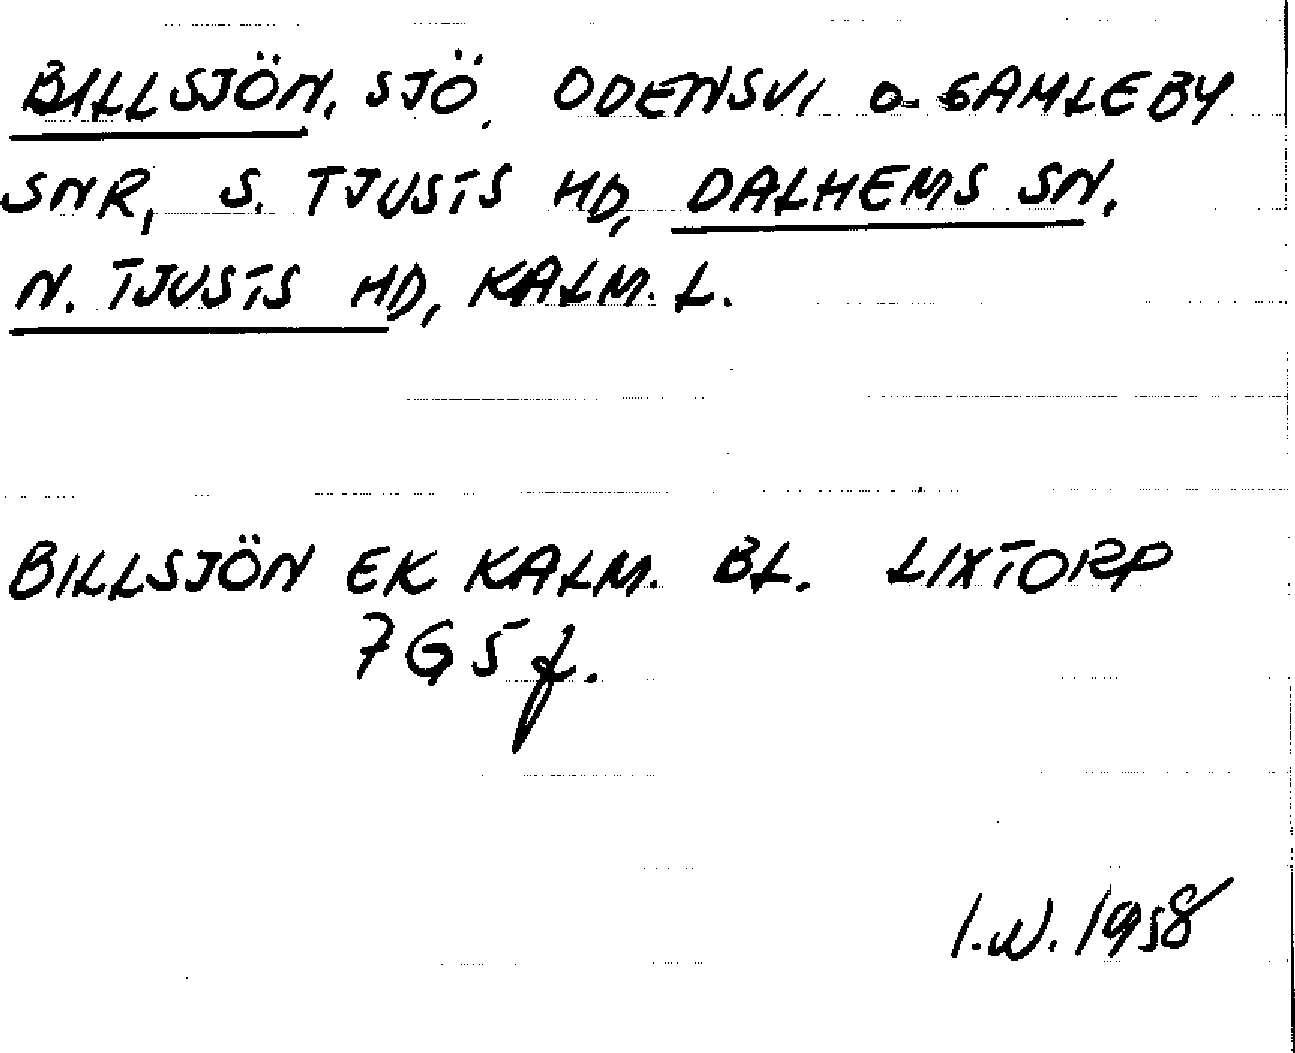 BILLSJÖN, SJÖ. ODENSVI o. GAMLEBY
SNR, S. TJUSTS HD, DALHEMS SN.
N. TJUSTS HD, KALM. L.
BILLSJÖN EK KALM. BL. LIXTORP
7G5f.
I.N. 1958